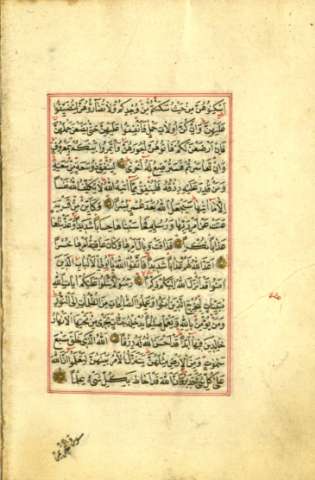 أسكنوهن من حيث سكنتم من وجدكم ولا تضاروهن لتضيقوا
عليهن وإن كن أولات حمل فأنفقوا عليهن حتى يضعن حملهن
فإن أرضعن لكم فآتوهن أجورهن وأتمروا بينكم بمعروف
وإن تعاسرتم فسترضع له أخرى لينفق ذو سعة من سعته
ومن قدر عليه رزقه فلينفق مما آتيه الله لا يكلف الله نفسا
إلا ما آتيها سيجعل الله بعد عسر يسرا وكأين من قرية
عتت عن أمر ربها ورسله فحاسبناها حسابا شديدا وعذبناها
عذابا نكرا فذاقت وبال أمرها وكان عاقبة أمرها خسرا
أعد الله لهم عذابا شديدا فاتقوا الله يا أولي الألباب الذين
آمنوا قد أنزل الله إليكم ذكرا رسولا يتلوا عليكم آيات الله
مبينات ليخرج الذين آمنوا وعملوا الصالحات من الظلمات إلى النور
ومن يؤمن بالله ويعمل صالحا يدخله جنات تجري من تحتها الأنهار
خالدين فيها أبدا قد أحسن الله له رزقا الله الذي خلق سبع
سموات ومن الأرض مثلهن يتنزل الأمر بينهن لتعلموا أن الله
على كل شيء قدير وأن الله قد أحاط بكل شيء علما